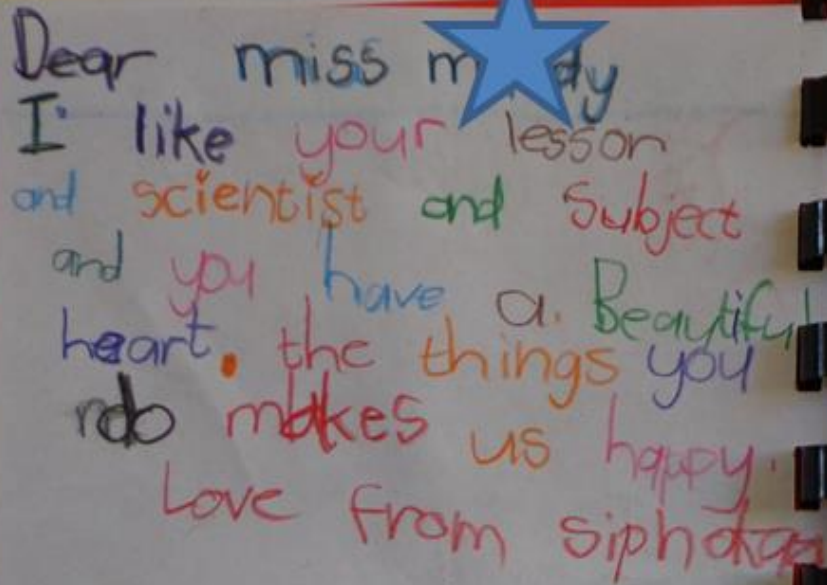 Dear miss
I like your lesson
and scientist and Subject
and you have a. Beautiful
heart. the things you
do makes us happy.
Love from